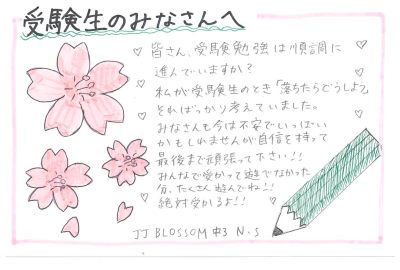 受験生のみなさんへ
皆さん、受験勉強は順調に
進んでいますか？
私が受験生のとき「落ちたらどうしよ」
そればっかり考えていました。
みなさんも今は不安でいっぱい
かもしれませんが自信を持って
最後まで頑張って下さい!!
みんなで受かって遊べなかった
分、たくさん遊んでね!!
絶対受かるよ!!
JJ BLOSSOM 中3 N.S